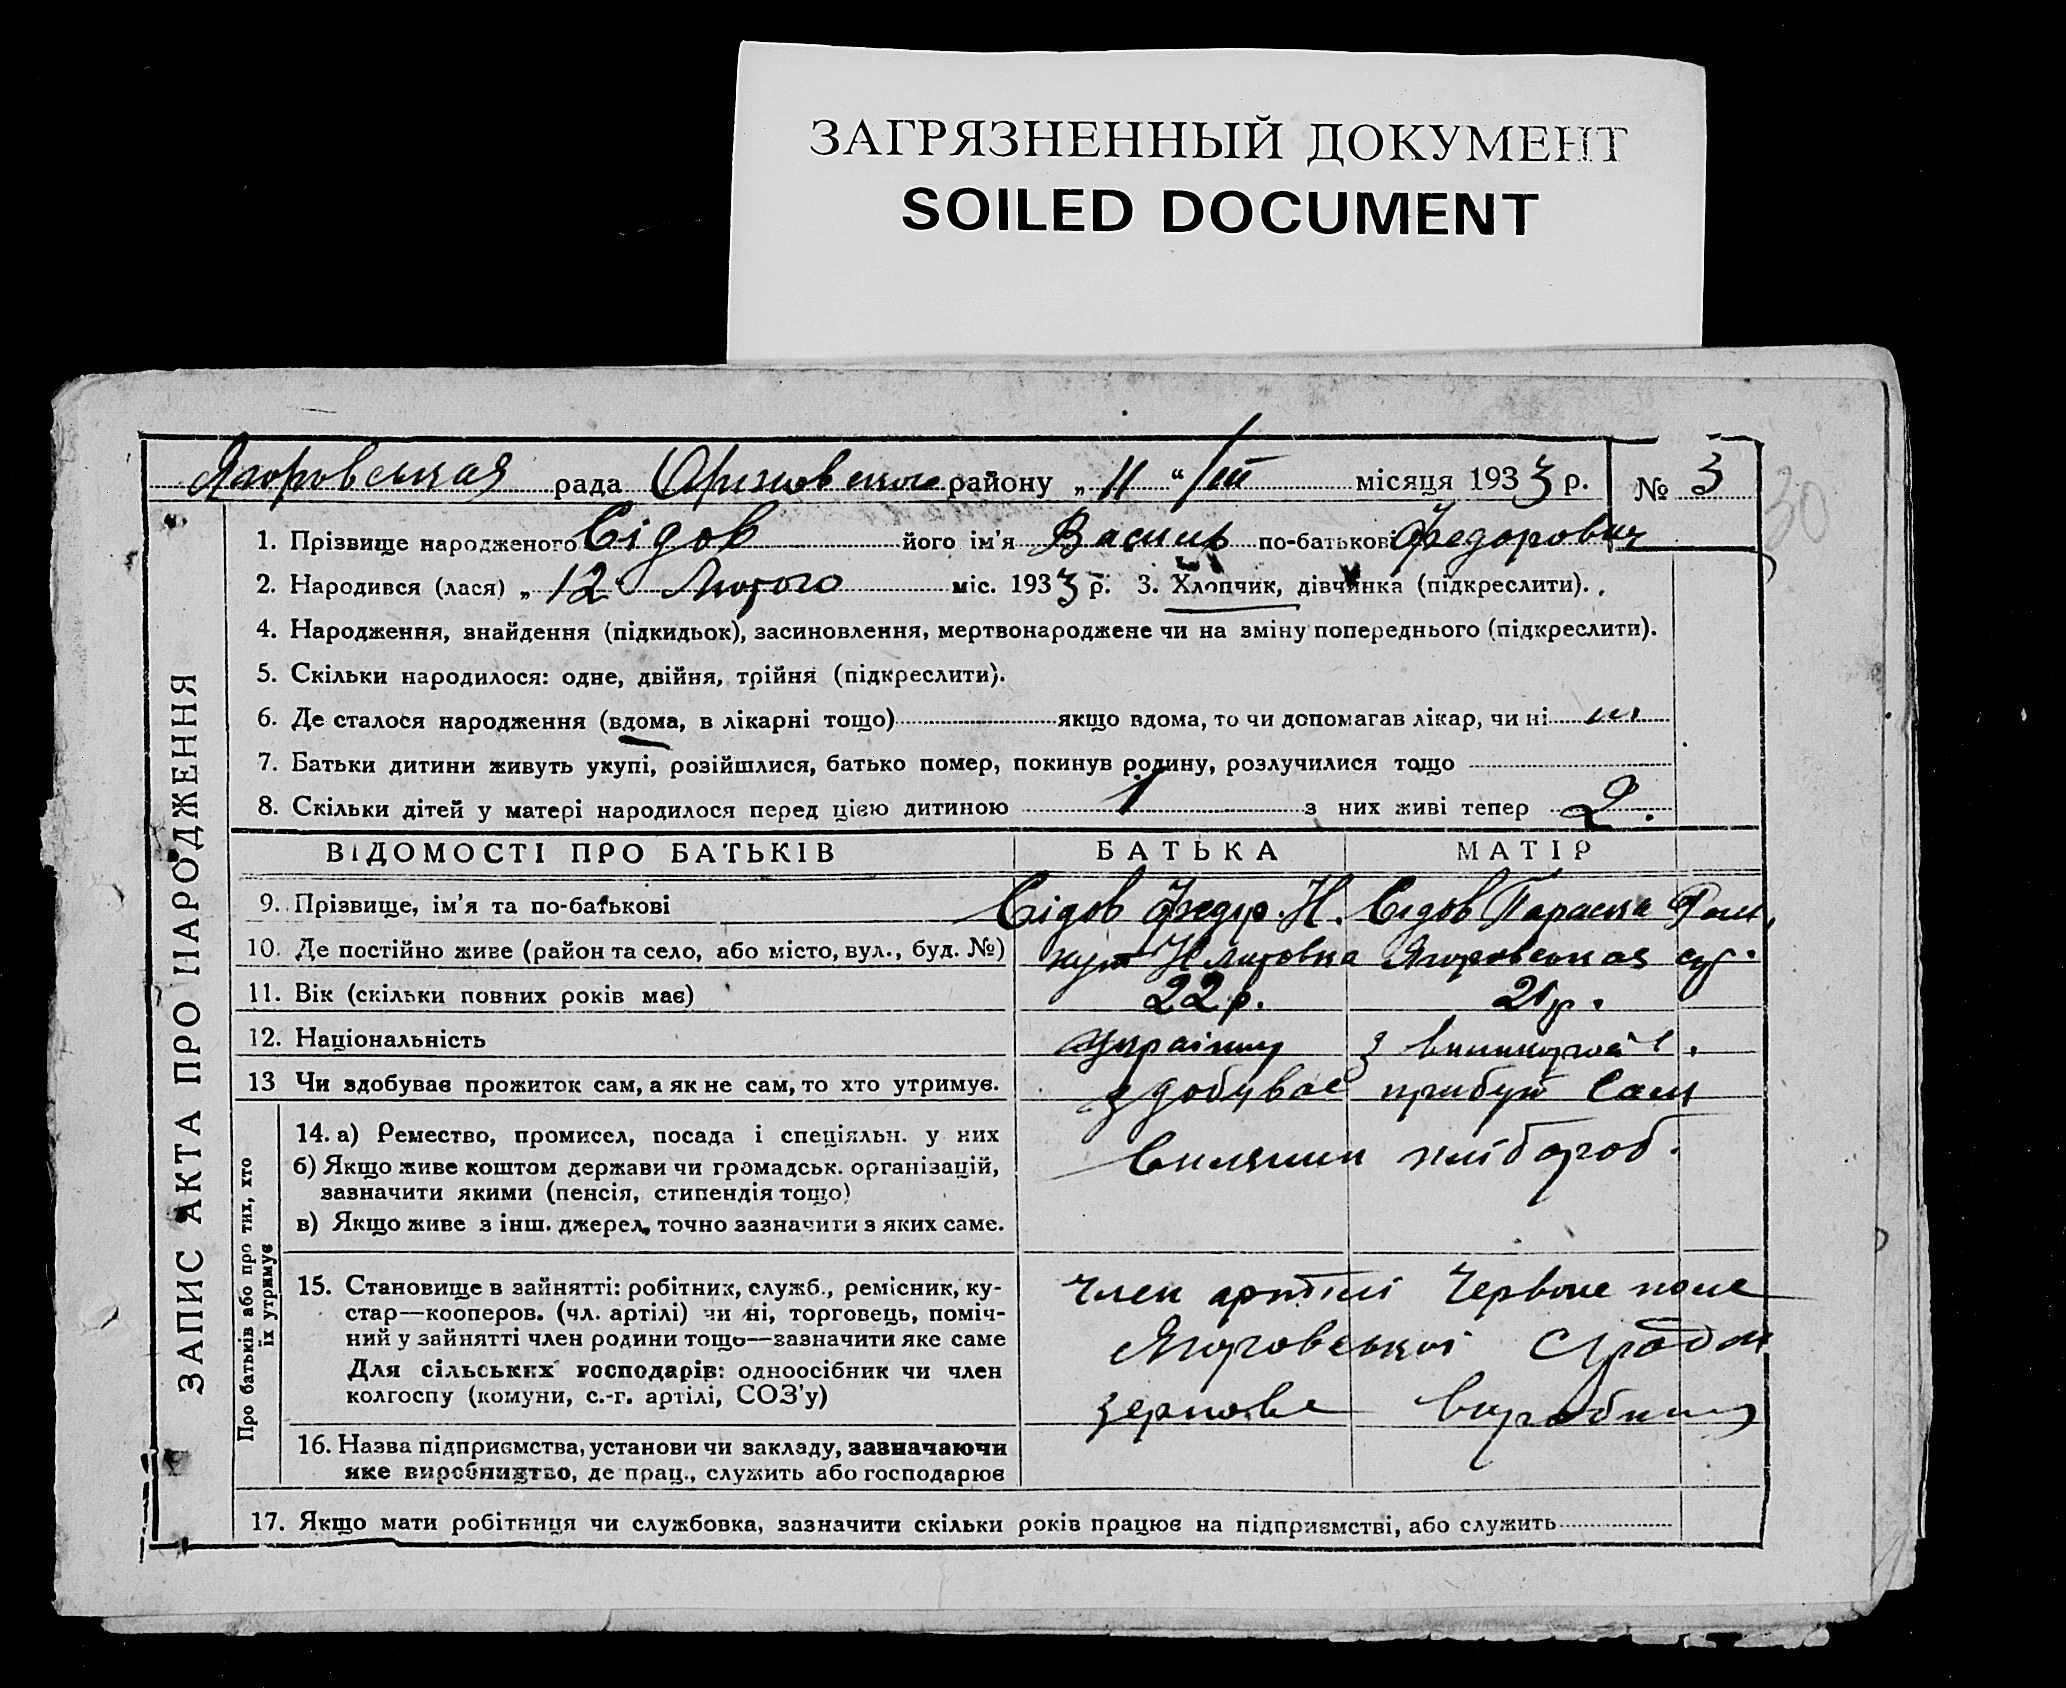 ЗАГРЯЗНЕННЫЙ ДОКУМЕНТ
SOILED DOCUMENT
рада району „ 11 “ /III місяця 1933 р. № 3
30
1. Прізвище народженого Сідов його ім'я Василь по-батькові Федорович
2. Народився (лася) „ 12 “ Лютого міс. 1933 р. 3. Хлопчик, дівчинка (підкреслити).
4. Народження, знайдення (підкидьок), засиновлення, мертвонароджене чи на зміну попереднього (підкреслити).
5. Скільки народилося: одне, двійня, трійня (підкреслити).
6. Де сталося народження (вдома, в лікарні тощо) якщо вдома, то чи допомагав лікар, чи ні ні
7. Батьки дитини живуть укупі, розійшлися, батько помер, покинув родину, розлучилися тощо
8. Скільки дітей у матері народилося перед цією дитиною 1 з них живі тепер 2.
ЗАПИС АКТА ПРО НАРОДЖЕННЯ
ВІДОМОСТІ ПРО БАТЬКІВ БАТЬКА МАТІР
9. Прізвище, ім'я та по-батькові Сідов Федір Н. Сідов Параска
10. Де постійно живе (район та село, або місто, вул., буд. №) хут
11. Вік (скільки повних років має) 22 р. 21 р.
12. Національність
13 Чи здобуває прожиток сам, а як не сам, то хто утримує. здобуває прибут сам
Про батьків або про тих, хто
їх утримує
14. а) Ремество, промисел, посада і спеціяльн. у них
б) Якщо живе коштом держави чи громадськ. організацій,
зазначити якими (пенсія, стипендія тощо)
хлібороб.
в) Якщо живе з інш. джерел, точно зазначити з яких саме.
15. Становище в зайнятті: робітник, служб., ремісник, ку-
стар—кооперов. (чл. артілі) чи ні, торговець, поміч-
ний у зайнятті член родини тощо—зазначити яке саме
Для сільських господарів: одноосібник чи член
колгоспу (комуни, с.-г. артілі, СОЗ'у)
член артілі Червоне поле
зернове
16. Назва підприємства, установи чи закладу, зазначаючи
яке виробництво, де прац., служить або господарює
17. Якщо мати робітниця чи службовка, зазначити скільки років працює на підприємстві, або служить